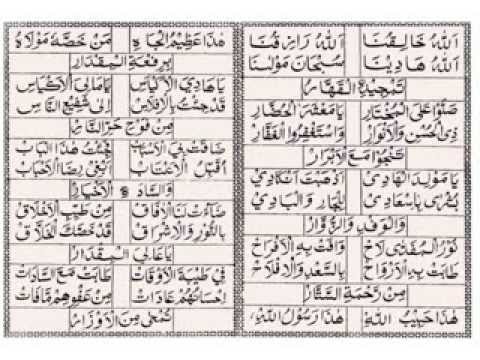 اَللهُ خَالِقُنَا اَللهُ رَازِقُنَا
اَللهُ هَادِيْنَا سُبْحَانَ مَوْلٰسنَا
تَمْجِيْدَةَ الْقَهَّارُ
صَلُّوْا عَلَى الْمُخْتَارِ يَامَعْشَرَ الْحُضَّارِ
ذِى الْحُسْنِ وَالْاَنْوَارِ وَاسْتَغْفِرُوا الْغَفَّارَ
تَنْجُوْا مَعَ الْاَبْرَارِ
يَامَوْلِدَ الْهَادِيْ اَذْهَبْتَ اَنْكَادِيْ
بُشْرٰى بِاِسْعَادِيْ لِلْجَارِ وَالْبَادِيْ
وَالْوَفْدِ وَالزُّوَّارْ
نُوْرُ الْمُفَدّٰى لَاحْ وَافَتْ بِهِ الْاَفْرَاحْ
طَابَتْ بِهِ الْاَرْوَاحْ بِالسَّعْدِ وَالْاِفْلَاحْ
مِنْ رَحْمَةِ السَّتَّارِ
هٰذَا حَبِيْبُ اللهِ هٰذَا رَسُوْلُ اللهِ
هٰذَا عَظِيْمُ الْجَاهِ مَنْ خَصَّهُ مَوْلَاهُ
بِرِفْعَةِ الْمِقْدَارِ
يَاهَادِيَ الْاَكْيَاسِ يَامَالِيَ الْاَكْيَاسِ
قَدْ جِئْتُ بِالْاِفْلَاسِ اِلٰى شَفِيْعِ النَّاسِ
مِنْ فَوْحِ حَرِّ النَّارِ
ضَاقَتْ بِيَ الْاَسْبَابْ فَجِئْتُ هٰذَا الْبَابْ
اُقَبِّلُ الْاَعْتَابْ اَبْغِيْ رِضَا الْاَحْبَابْ
وَالسَّادَةِ الْاَخْيَارْ
ضَاءَتْ بِنَا الْاٰفَاقْ مِنْ طَيِّبِ الْاَخْلَاقْ
بِالنُّوْرِ وَالْاِشْرَاقْ قَدْ خَصَّكَ الْخَلَّاقْ
يَاعَالِيَ الْمِقْدَارْ
فِيْ طَيْبَةَ الْاَوْقَاتْ طَابَتْ مَعَ السَّادَاتْ
اِحْسَانُهُمْ عَادَاتْ مِنْ عَفْوِهِمْ مَافَاتْ
تُمْحٰى مِنَ الْاَوْزَارْ